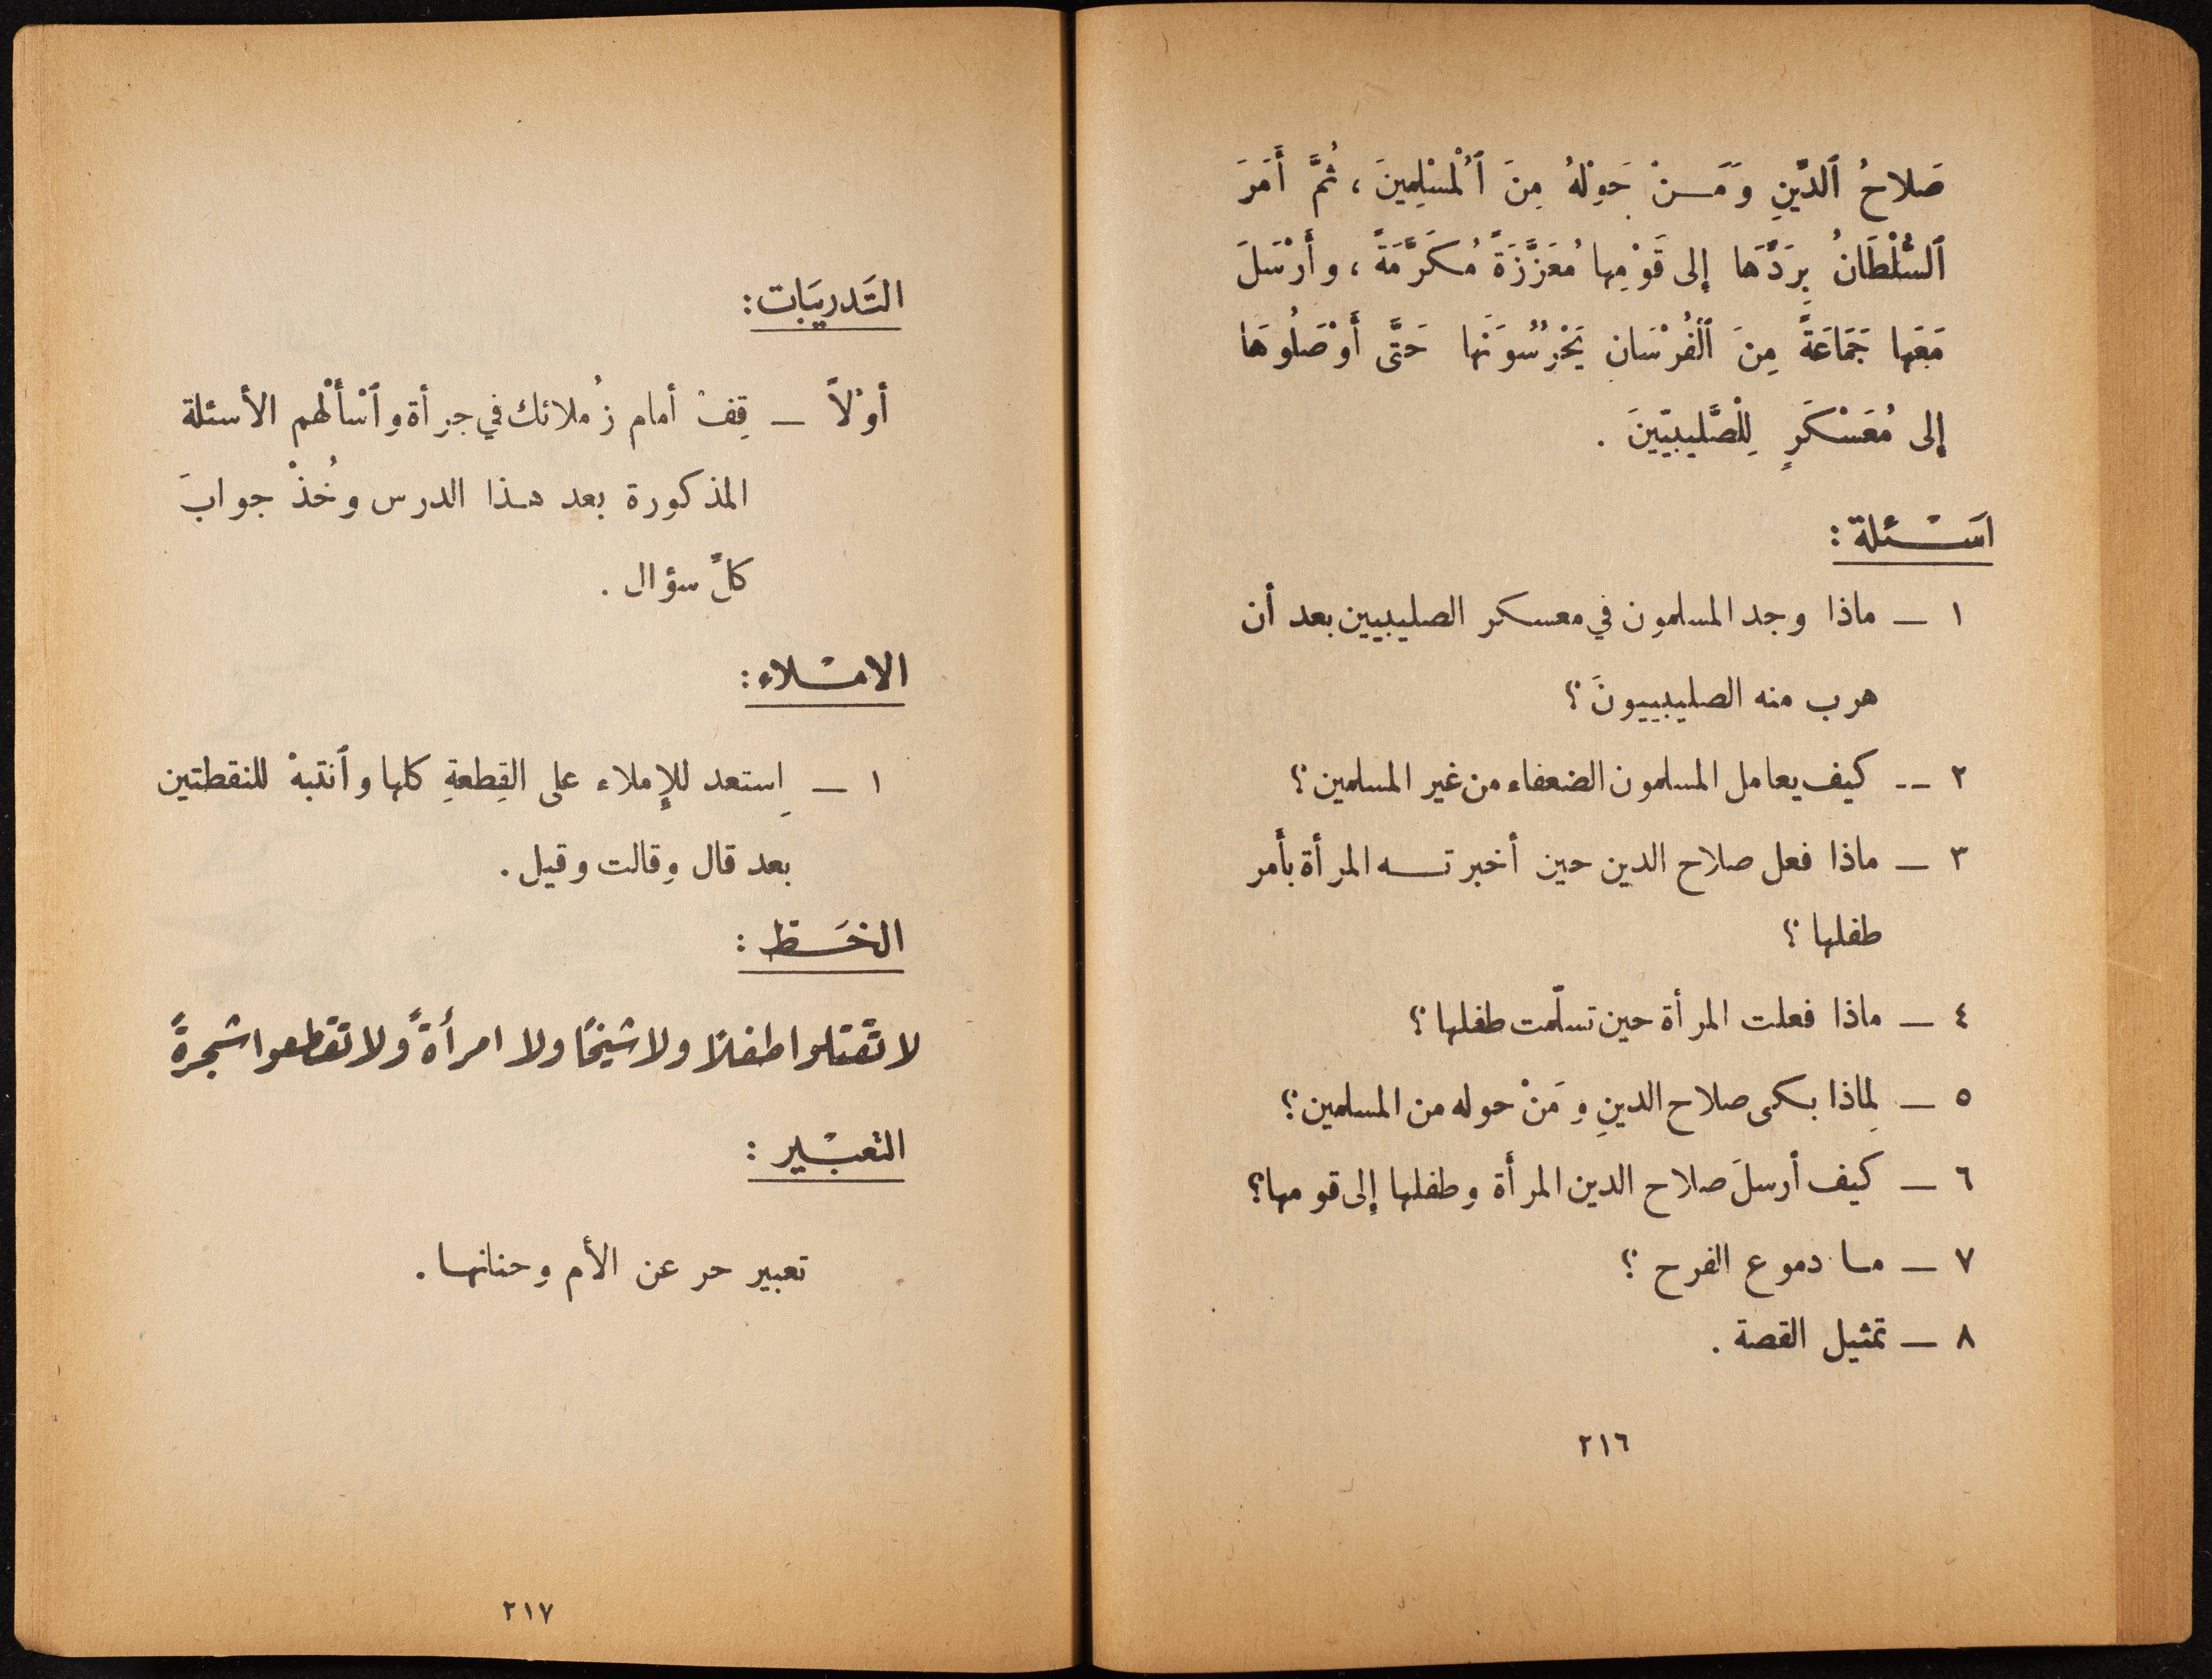 صَلاحُ ٱلدِّينِ وَمَـنْ حَوْلَهُ مِنَ ٱلْمُسْلِمِينَ ، ثُمَّ أَمَرَ
ٱلسُّلْطَانُ بِرَدِّهَا إِلى قَوْمِها مُعَزَّزَةً مُكَرَّمَةً ، وأَرْسَلَ
مَعَها جَمَاعَةً مِنَ ٱلْفُرْسَانِ يَحْرُسُونَها حَتَّى أَوْصَلُوهَا
إِلى مُعَسْكَرٍ لِلْصَّلِيبِيِّينَ .
اَسْـئلة :
١ ـ ماذا وجد المسلمون في معسكر الصليبيين بعد أن
هرب منه الصليبييونَ ؟
٢ -- كيف يعامل المسلمون الضعفاء من غير المسلمين ؟
٣ ـ ماذا فعل صلاح الدين حين أخبرتـه المرأة بأمر
طفلها ؟
٤ ـ ماذا فعلت المرأة حين تسلّمت طفلها ؟
٥ ـ لِماذا بكى صلاح الدينِ وَمَنْ حوله من المسلمين ؟
٦ ـ كَيف أرسلَ صلاح الدين المرأة وطفلها إلى قومها ؟
٧ ـ مـا دموع الفرح ؟
٨ ـ تمثيل القصة .
٢١٦
التَدريَبات :
أوْلاً ـ قِفْ أمام زُملائك في جرأة وٱسْألْهم الأسئلة
المذكورة بعد هـذا الدرس وخُذْ جوابَ
كلِّ سؤال .
الامْـلاء :
١ ـ اِستعد للإِملاء على القِطعةِ كلها وٱنتبهْ للنقطتين
بعد قال وقالت وقيل .
الخَـط :
لا تَقتلوا طفلاً ولا شيخًا ولا امرأةً ولا تقطعوا شجرةً
التعبْـير :
تعبير حر عن الأم وحنانهـا .
٢١٧